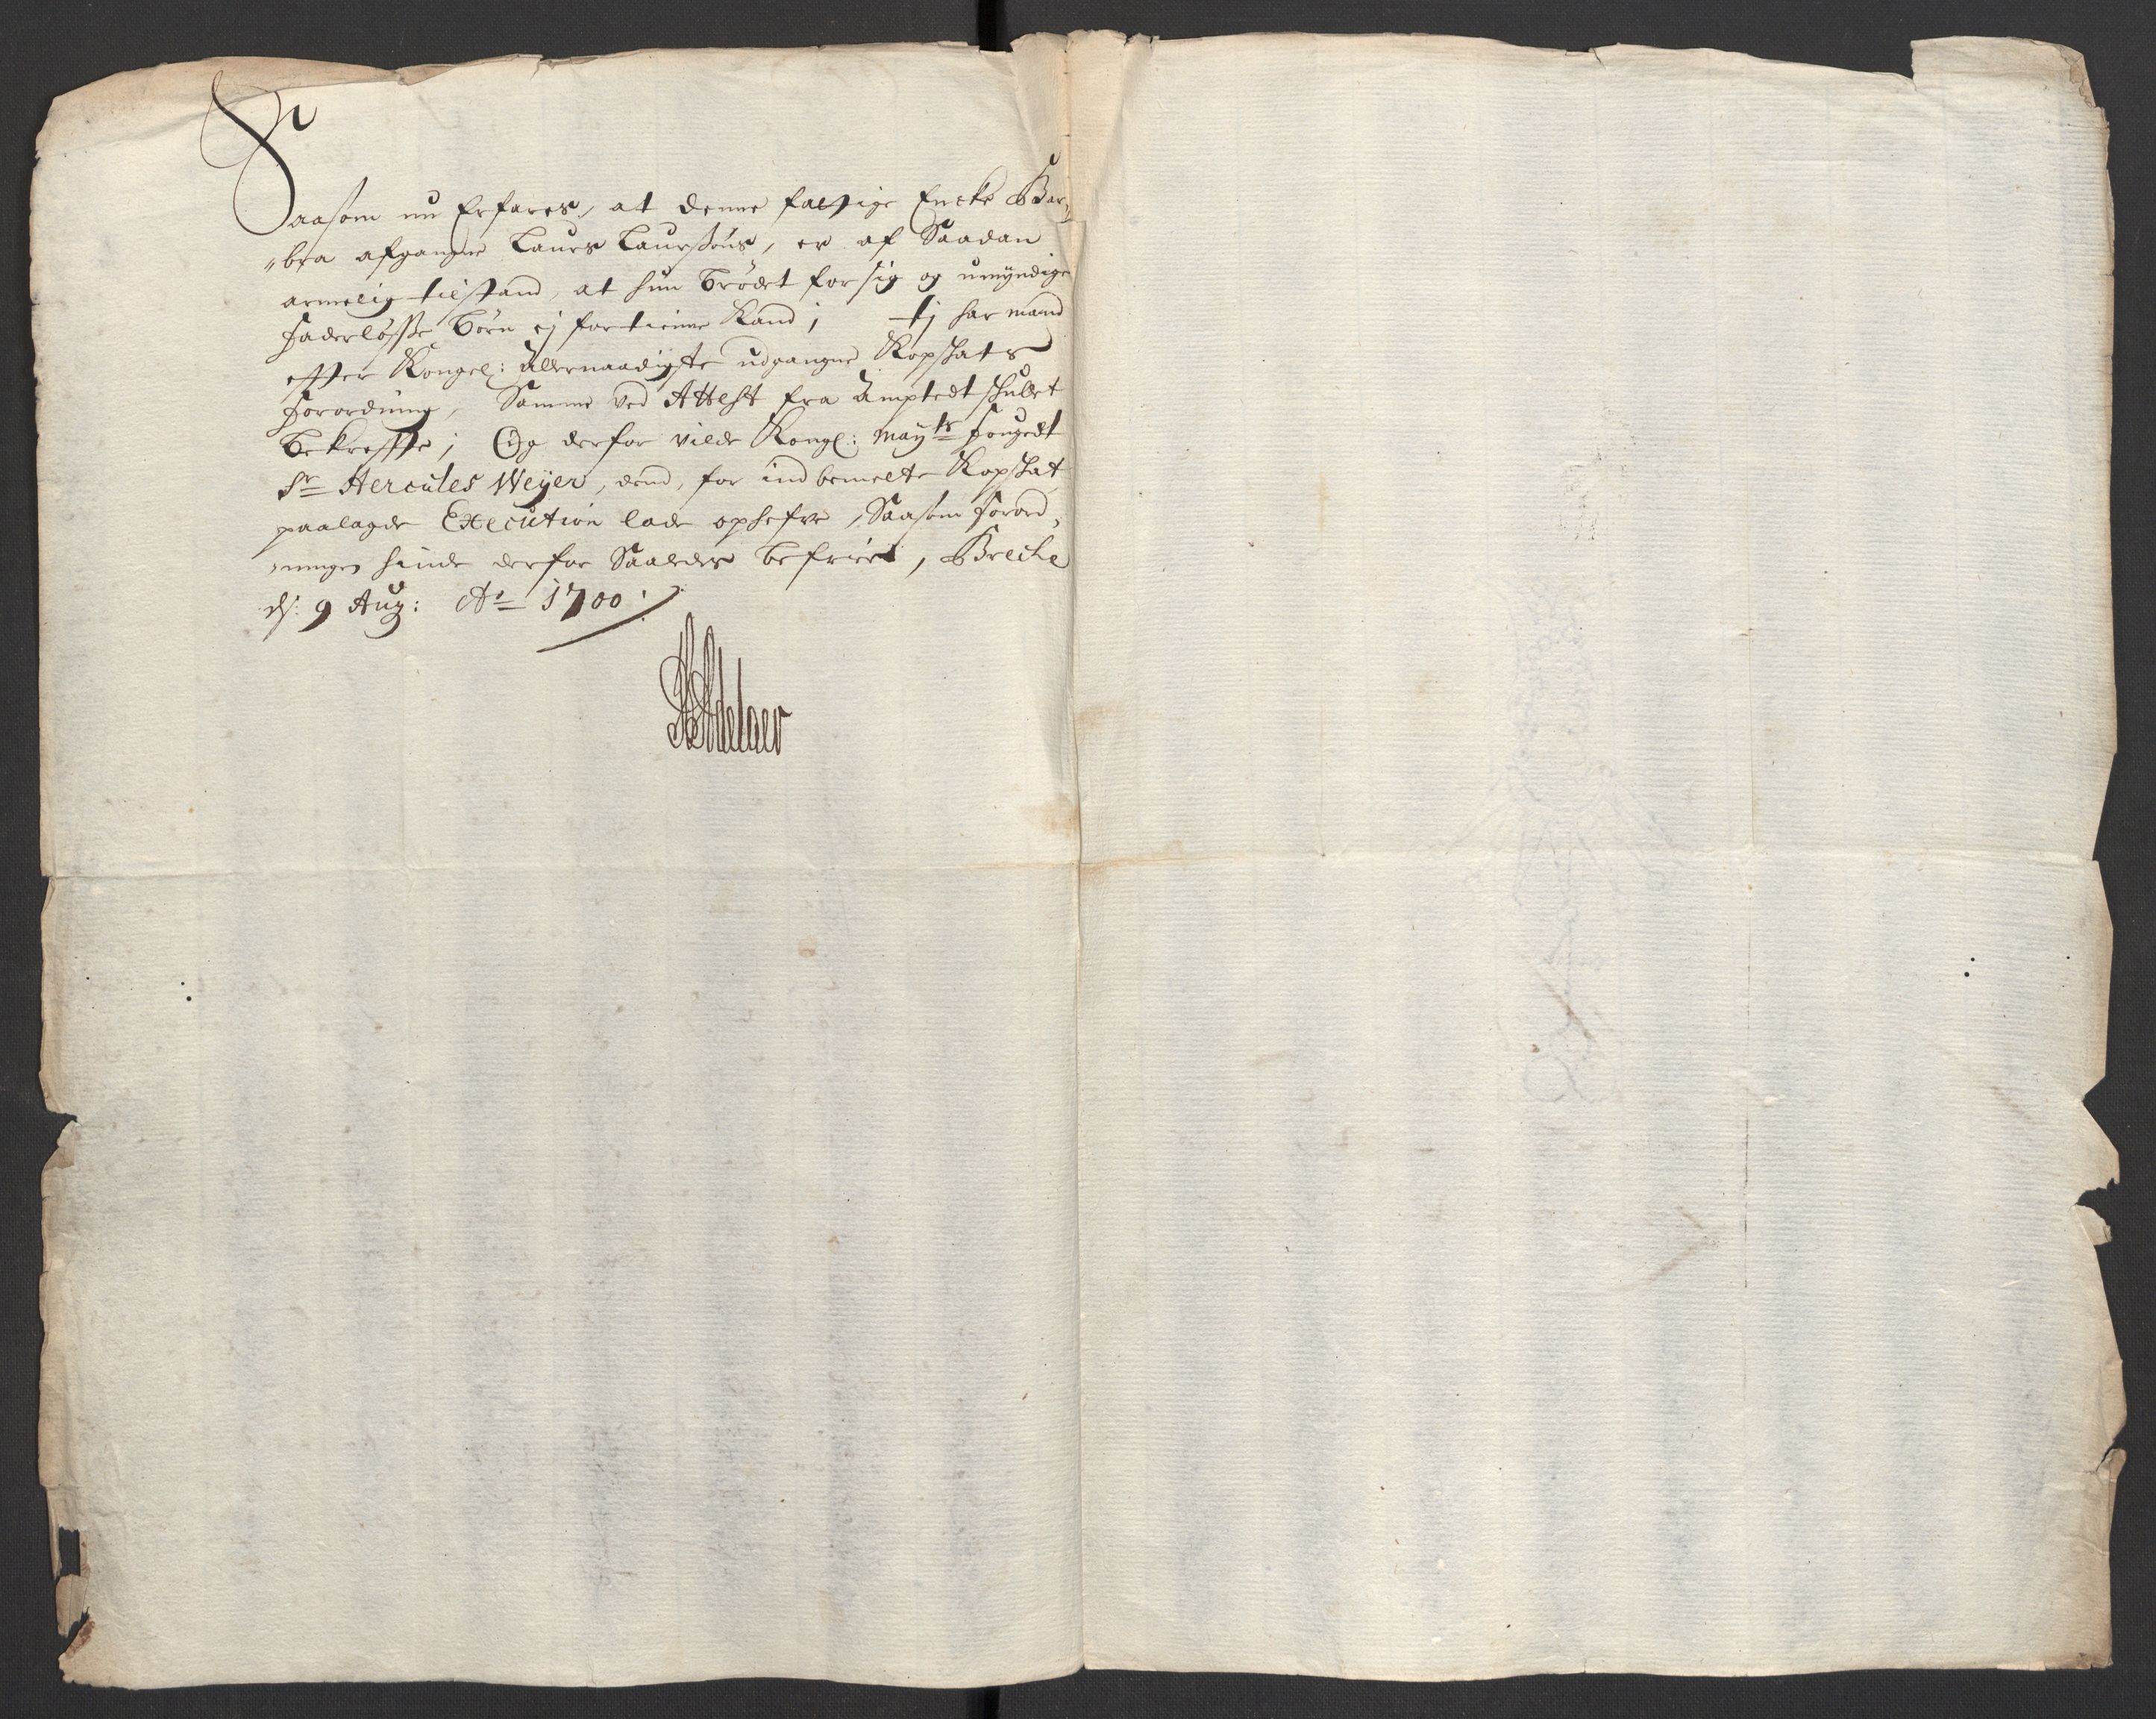 Saasom nu Erfares, at denne fattige Encke Bar„
„bra afgangne Laurs Laurssøns, er af Saadan
armelig tilstand, at hun brødet for sig og umyndige
Faderløsse børn ej fortienne Kand; tj har mand
effter Kongel: allernaadigste udgangne Kopskats
Forordning, Samme ved Attest fra Amptedt skullet
bekreffte; Og derfor vilde Kongl: Mayts Fougedt
Sr Hercules Weyer, dend, for ind bemelte Kopskat
paalagde Execution lade ophefve, Saasom Forord„
„ningen hinde derfor Saaledes befrier, Breche
ds: 9 Aug: Ao 1700.
Adelaer